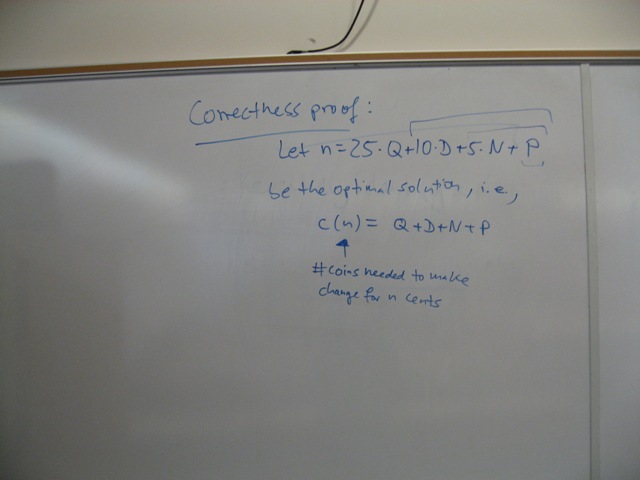 Correctness proof:
Let n=25·Q+10·D+5·N+P
be the optimal solution, i.e.,
c(n)= Q+D+N+P
#coins needed to make
change for n cents